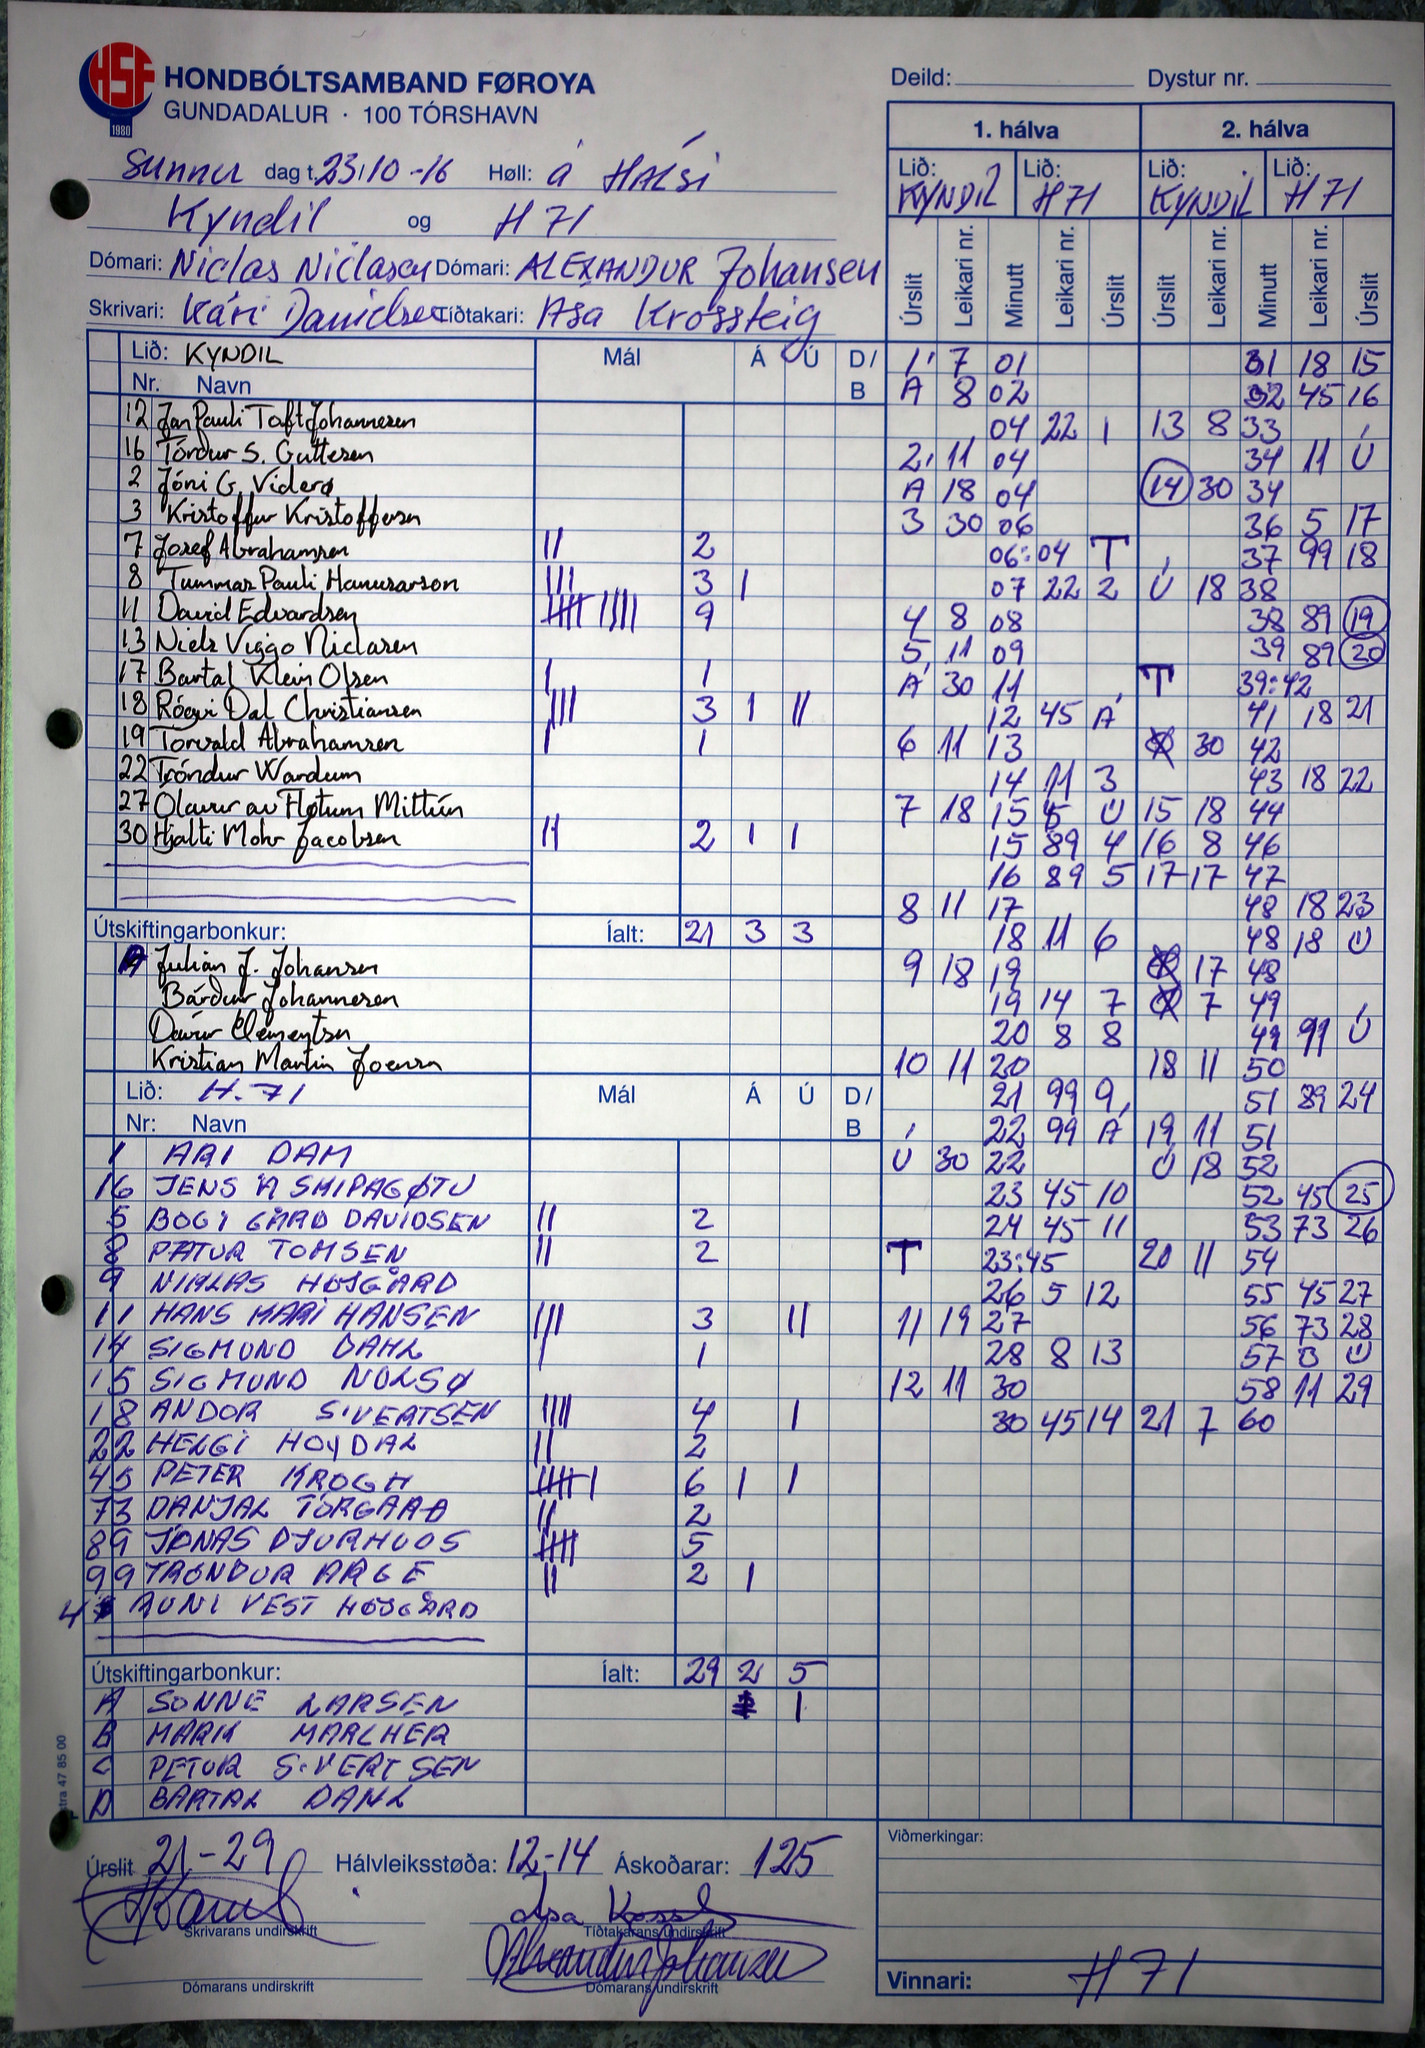 HSF
1980
HONDBÓLTSAMBAND FØROYA
GUNDADALUR · 100 TÓRSHAVN
Sunnu dag t. 23/10-16 Høll: á HÁLSI
Kyndil og H 71
Dómari: Niclas Niclasen Dómari: ALEXANDUR Johansen
Skrivari: Kári Danielsen Tíðtakari: Asa Krossteig
Deild: Dystur nr.
1. hálva 2. hálva
Lið: KYNDIL Lið: H 71 Lið: KYNDIL Lið: H 71
Úrslit Leikari nr. Minutt Leikari nr. Úrslit Úrslit Leikari nr. Minutt Leikari nr. Úrslit
Lið: KYNDIL Mál Á Ú D/B
Nr. Navn
12 Jan Pauli Toft Johannesen
16 Tórður S. Guttesen
2 Jóni G. Viderø
3 Kristoffur Kristoffersen
7 Josef Abrahamsen II 2
8 Tummas Pauli Hanusarson III 3 I
11 David Edvardsen IIIII IIII 9
13 Niels Viggo Niclasen
17 Bartal Klein Olsen I 1
18 Rógvi Dal Christiansen III 3 I II
19 Torvald Abrahamsen I 1
22 Tróndur Wardum
27 Ólavur av Fløtum Mittún
30 Hjalti Mohr Jacobsen II 2 I I
Útskiftingarbonkur: Íalt: 21 3 3
A Julian J. Johansen
Bárður Johannesen
Davur Clementsen
Kristian Martin Joensen
Lið: H. 71 Mál Á Ú D/B
Nr: Navn
1 ARI DAM
16 JENS Á SKIPAGØTU
5 BOGI GÅRD DAVIDSEN II 2
8 PÆTUR TOMSEN II 2
9 NIKLAS HØJGÅRD
11 HANS KÁRI HANSEN III 3 II
14 SIGMUND DAHL I 1
15 SIGMUND NOLSØ
18 ANDOR SIVERTSEN IIII 4 I
22 HELGI HOYDAL II 2
45 PETER KROGH IIIII I 6 I I
73 DANJAL TORGARÐ II 2
89 JÓNAS DJURHUUS IIIII 5
99 TRÓNDUR ARGE II 2 I
4 RUNI VEST HØJGÅRD
Útskiftingarbonkur: Íalt: 29 2 5
A SONNE LARSEN I
B MARK MARLHER
C PETUR SIVERTSEN
D BARTAL DAHL
1 7 01 31 18 15
A 8 02 32 45 16
04 22 1 13 8 33
2 11 04 34 11 Ú
A 18 04 14 30 34
3 30 06 36 5 17
06:04 T 37 99 18
07 22 2 Ú 18 38
4 8 08 38 89 19
5 11 09 39 89 20
Á 30 11 T 39:42
12 45 Á 41 18 21
6 11 13 30 42
14 11 3 43 18 22
7 18 15 5 Ú 15 18 44
15 89 4 16 8 46
16 89 5 17 17 47
8 11 17 48 18 23
18 11 6 48 18 Ú
9 18 19 17 48
19 14 7 7 49
20 8 8 49 99 Ú
10 11 20 18 11 50
21 99 9 51 89 24
22 99 Á 19 11 51
Ú 30 22 Ú 18 52
23 45 10 52 45 25
24 45 11 53 73 26
T 23:45 20 11 54
26 5 12 55 45 27
11 19 27 56 73 28
28 8 13 57 B Ú
12 11 30 58 11 29
30 45 14 21 7 60
Úrslit 21-29 Hálvleiksstøða: 12-14 Áskoðarar: 125
Skrivarans undirskrift Tíðtakarans undirskrift
Dómarans undirskrift Dómarans undirskrift
Viðmerkingar:
Vinnari: H 71